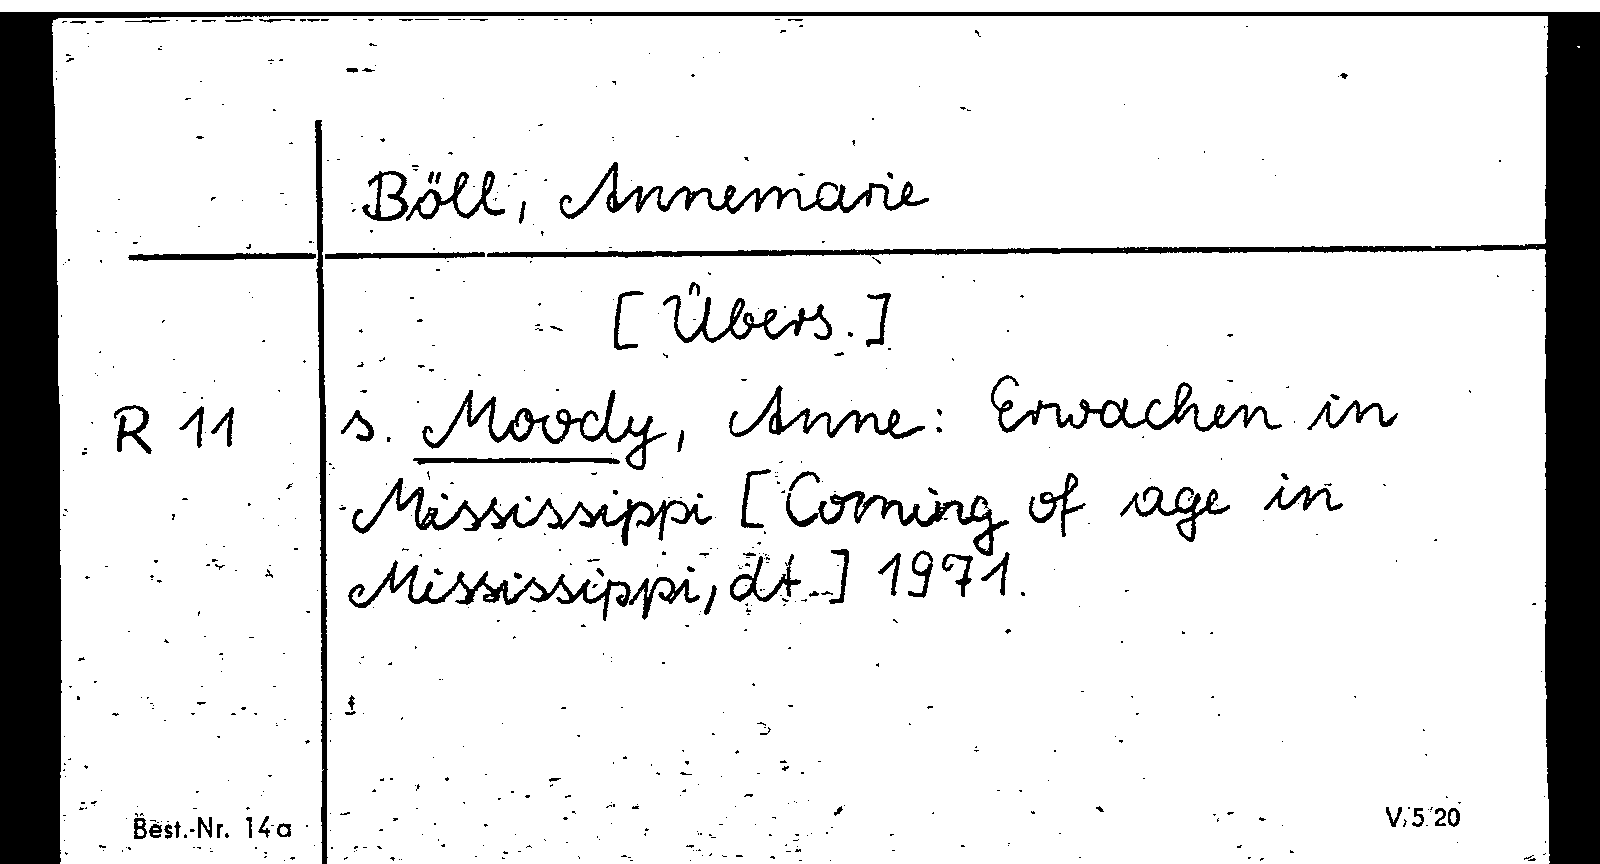 Böll, Annemarie
[Übers.]
R 11 s. Moody, Anne: Erwachen in
Mississippi [Coming of age in
Mississippi, dt.] 1971.
Best.-Nr. 14a V/5/20